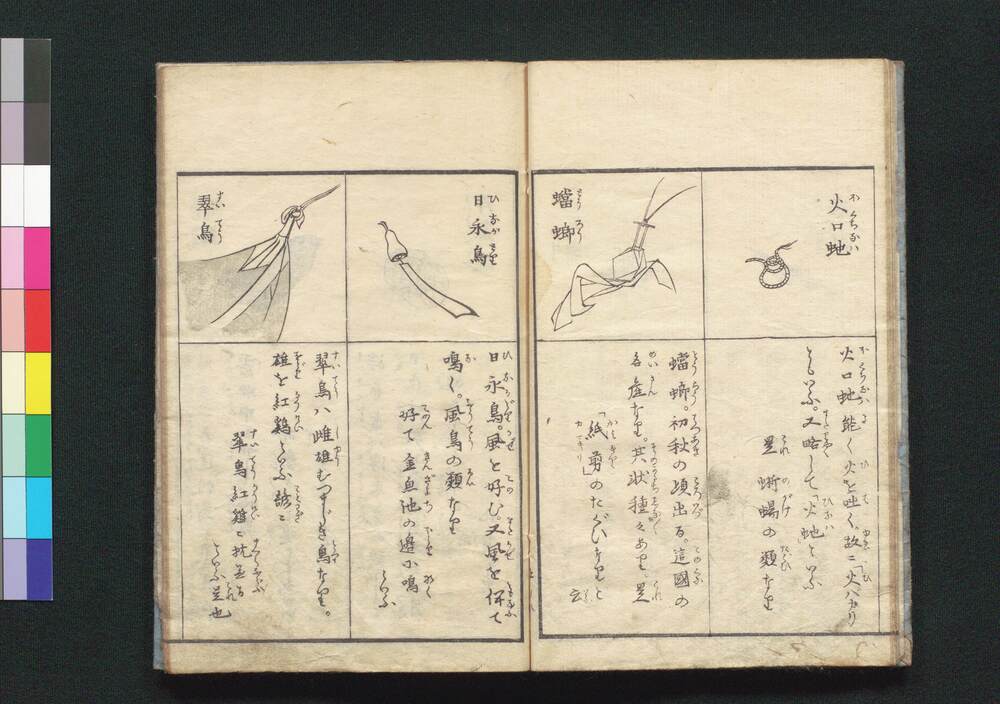 火口虵
火口虵能く火を吐く故ニ「火バカリ
ともいふ。又略して「火虵といふ
是蜥蜴の類なり
蟷螂
蟷螂。初秋の頃出る。這國の
名産なり。其状種々あり是
「紙剪のたぐひなりと
云
日永鳥
日永鳥。風を好む。又風を伴て
鳴く。風鳥の類なり
好て金魚池の邉に鳴
といふ
翠鳥
翠鳥ハ雌雄むつましき鳥なり。
雄を紅鶏といふ諺に
翠鳥紅鶏に枕並る
といふ是也